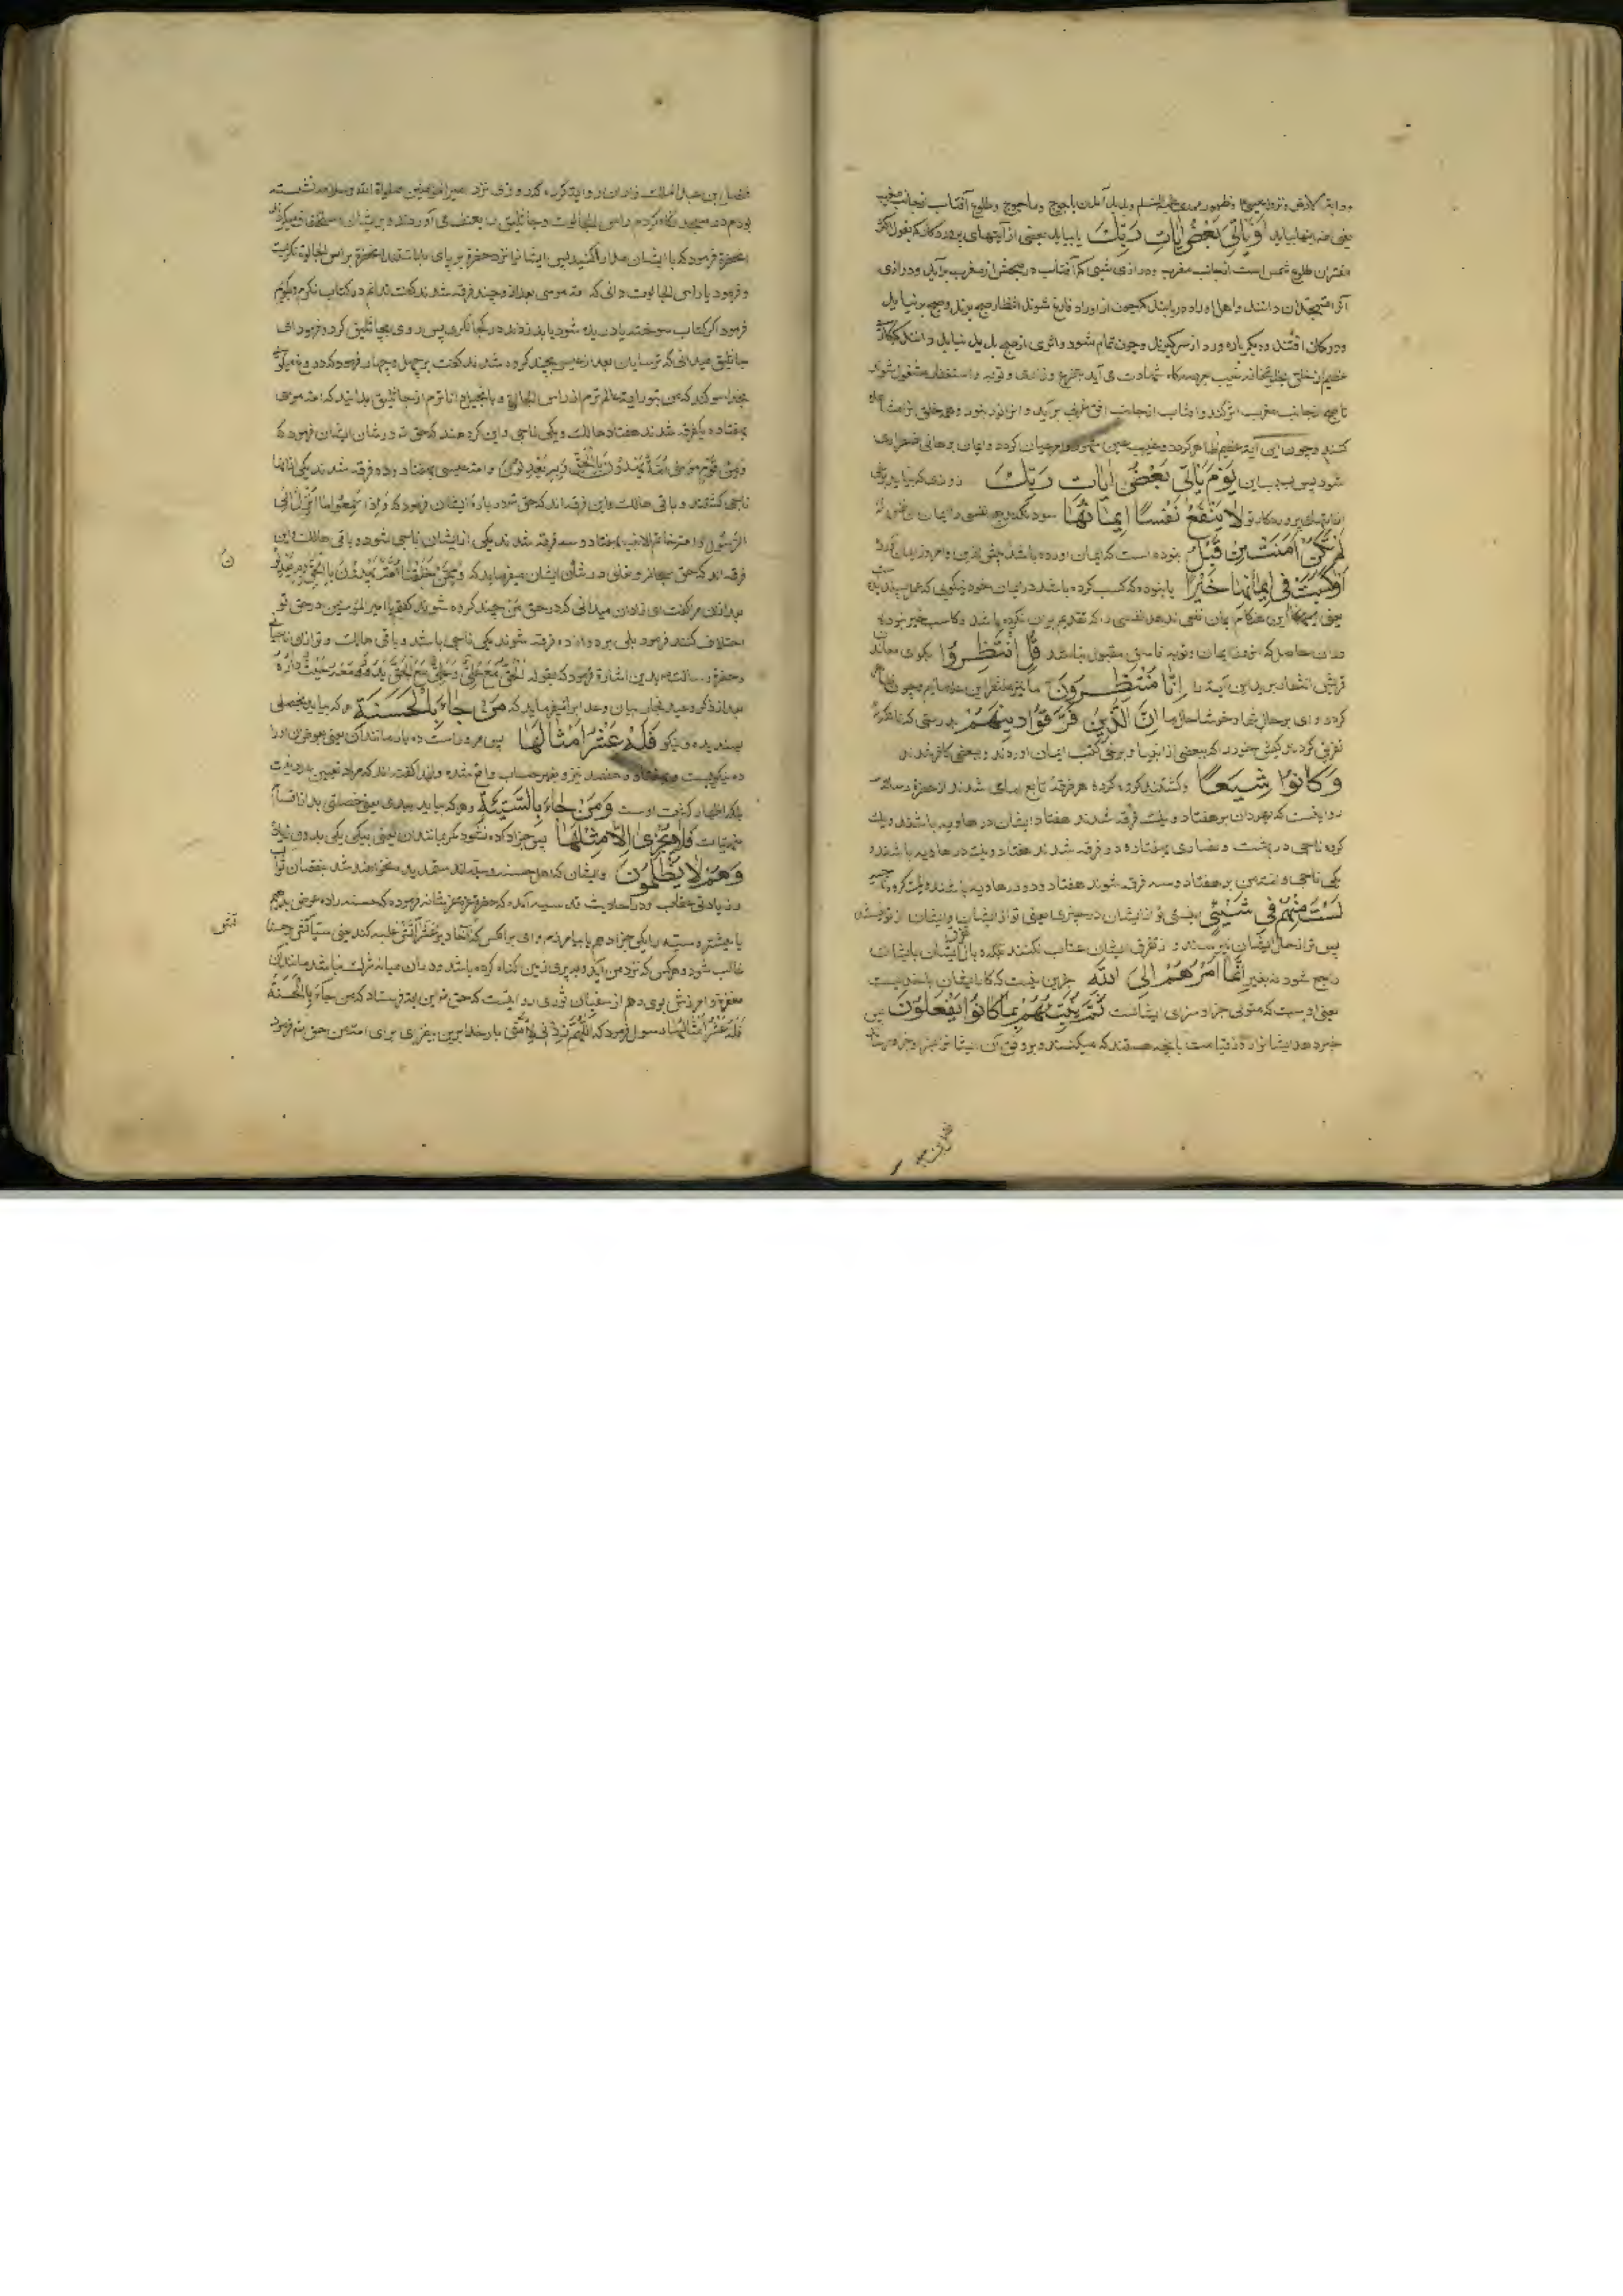 و دابة الارض و نزول عیسی و ظهور مهدی علیه السلم و پدید آمدن یاجوج و ماجوج و طلوع آفتاب از جانب مغرب
یعنی همه اینها بیاید اَوْ یَاْتِیَ بَعْضُ اٰیاتِ رَبِّكَ یا بیاید بعضی از آیتهای پروردگار که بقول اکثر
مفسران طلوع شمس است از جانب مغرب و درازی شبی که آفتاب در صبحش از مغرب برآید و درازی
آنرا متهجدان دانند و اهل اوراد دریابند که چون از اوراد فارغ شوند انتظار صبح برند و صبح برنیاید
و در گمان افتند و دیگر باره ورد از سر گیرند و چون تمام شود و اثری از صبح پدید نیاید دانند که
عظیم از خلق بدیخانه غیب بعرصه گاه شهادت می آید بتضرع و زاری و توبه و استغفار مشغول شوند
تا صبح از جانب مغرب اثر کند و آفتاب از جانب افق غرب برآید و او را نور نبود و همه خلق
کنند و چون این آیة عظیم ظاهر گردد و غیب عین شهود و امر عیان گردد و ایمان برهانی ضروری
شود پس بسبب این یَوْمَ یَاْتِی بَعْضُ اٰیاتِ رَبِّكَ روزی که بیاید برخی
از آیتهای پروردگار تو لا یَنْفَعُ نَفْسًا اِیمَانُهَا سود نکند هیچ نفسی را ایمان
لَمْ تَكُنْ اٰمَنَتْ مِنْ قَبْلُ نبوده است که ایمان آورده باشد پیش ازین و امروز ایمان آورد
اَوْ كَسَبَتْ فِی اِیمَانِهَا خَیْرًا یا نبوده که کسب کرده باشد در ایمان خود نیکویی که عمل پسندیده
یعنی این هنگام ایمان نفعی ندهد نفسی را که تقدیم بران نکرده باشد و کاسب خیر نبوده
و ازین حاصل که آنروز ایمان و توبه فاسق مقبول نباشد قُلِ انْتَظِرُوا بگوی معاند
قریش انتظار برید این آیه را اِنَّا مُنْتَظِرُونَ ما نیز منتظر این علامایم چون
گردد وای بر حال شما و خوشا حال ما اِنَّ الَّذِینَ فَرَّقُوا دِینَهُمْ بدرستی که آنانکه
تفریق کردند کیش خود را که ببعضی از انبیا و برخی کتب ایمان آوردند و ببعضی کافر شدند
وَ كَانُوا شِیَعًا و گشتند گروه گروه هر فرقه تابع امامی شدند از حضرة رسالت
روایتست که یهودان بر هفتاد و یك فرقه شدند هفتاد ایشان در هاویه باشند و یك
گروه ناجی در بهشت و نصاری بهفتاد و دو فرقه شدند هفتاد و یك در هاویه باشند و
یکی ناجی و امت من بر هفتاد و سه فرقه شوند هفتاد و دو در هاویه باشند و یك گروه ناجی
لَسْتَ مِنْهُمْ فِی شَیْءٍ نیستی تو از ایشان در چیزی یعنی تو از ایشان و ایشان از تو نیستند
پس ترا از حال ایشان نپرسند و ز تفرق ایشان عتاب نکنند بلکه بازگشت ایشان بایشان
راجع شود نه بغیر اِنَّمَا اَمْرُهُمْ اِلَی اللّٰهِ جزین نیست که کار ایشان باخداست
یعنی اوست که متولی جزا و سزای ایشانست ثُمَّ یُنَبِّئُهُمْ بِمَا كَانُوا یَفْعَلُونَ پس
خبر دهد ایشانرا در قیامت بآنچه هستند که میکنند و بر وفق آن ایشانرا
فضل بن عبد الملك
فضل بن عبد الملك از زادان روایة کرده که روزی نزد امیر المؤمنین صلواة الله وسلامه نشسته
بودم در مسجد نگاه کردم راس الجالوت و جاثلیق را بعنف می آوردند و بر ایشان استخفاف میکردند
آنحضرة فرمود که با ایشان مدارا کنید پس ایشانرا نزد حضرة بر پای داشتند آنحضرة براس الجالوة نگریست
و فرمود یا راس الجالوت دانی که امة موسی بعد از او چند فرقه شدند گفت ندانم در کتاب نگرم و بگویم
فرمود اگر کتاب سوخته یا دریده شود یا بدزدند در کجا نگری پس روی بجاثلیق کرد و فرمود ای
جاثلیق میدانی که ترسایان بعد از عیسی بچند گروه شدند گفت بر چهل و چهار فرمود که دروغ میگویی
بخدا سوگند که من بتوراية عالم ترم از راس الجالوة و بانجیل داناترم از جاثلیق بدانید که امة موسی
بهفتاد و یك فرقه شدند هفتاد هالك و یکی ناجی و این گروهند که حق تع در شان ایشان فرمود که
وَ مِنْ قَوْمِ مُوسٰی اُمَّةٌ یَهْدُونَ بِالْحَقِّ وَ بِهِ یَعْدِلُونَ و امة عیسی بهفتاد و دو فرقه شدند یکی از آنها
ناجی گشتند و باقی هالك و این فرقه اند که حق تع در باره ایشان فرمود که وَ اِذَا سَمِعُوا مَا اُنْزِلَ اِلَی
الرَّسُولِ و امة خاتم الانبیا بهفتاد و سه فرقه شدند یکی از ایشان ناجی شود و باقی هالك و این
فرقه اند که حق سبحانه و تعالی در شأن ایشان میفرماید که وَ مِمَّنْ خَلَقْنَا اُمَّةٌ یَهْدُونَ بِالْحَقِّ وَ بِهِ یَعْدِلُونَ
بعد از آن مرا گفت ای زادان میدانی که در حق من چند گروه شوند گفتم یا امیر المؤمنین در حق تو
اختلاف کنند فرمود بلی بر دوازده فرقه شوند یکی ناجی باشد و باقی هالك و تو از آن ناجی
و حضرة رسالت بدین اشارة فرمود که بقوله اَلْحَقُّ مَعَ عَلِیٍّ وَ عَلِیٌّ مَعَ الْحَقِّ یَدُورُ مَعَهُ حَیْثُ دَارَ
بعد از ذکر وعید فجار بیان وعد ابرار میفرماید که مَنْ جَاءَ بِالْحَسَنَةِ هر که بیاید بخصلتی
پسندیده و نیکو فَلَهُ عَشْرُ اَمْثَالِهَا پس مر و راست ده بار مانند آن یعنی بعوض آن او را
ده نیکوییست و بهفتاد و هفتصد نیز و بغیر حساب واقع شده و لهذا گفته اند که مراد تعیین عدد نیست
بلکه اظهار کثرت اوست وَ مَنْ جَاءَ بِالسَّیِّئَةِ و هر که بیاید ببدی یعنی خصلتی بد از اقسام
منهیات فَلا یُجْزٰی اِلَّا مِثْلَهَا پس جزا داده نشود مگر بمانند آن یعنی بیکی یکی بدون زیادة
وَ هُمْ لا یُظْلَمُونَ و ایشان که اهل حسنه و سیئه اند ستمدیده نخواهند شد بنقصان ثواب
و زیادتی عقاب و در احادیث قدسیه آمده که حضرة عزة عز شانه فرموده که حسنه را ده عوض بدهم
یا بیشتر و سیئه را یکی جزا دهم یا بیامرزم وای بر آن کس که آحاد بر عشرات غلبه کند یعنی سیئآتش بر حسنات
غالب شود و هر کس که نزد من آید و بپری زمین گناه کرده باشد و در آن میانه شرك نباشد مانند آن
مغفرة و آمرزش بوی دهم از سفیان ثوری روایتست که حق تع این آیة فرستاد که من جَاءَ بِالْحَسَنَةِ
فَلَهُ عَشْرُ اَمْثَالِهَا رسول فرمود که اَللّٰهُمَّ زِدْ فِی اُمَّتِی بار خدایا برین بیفزای برای امة من حق تع فرمود